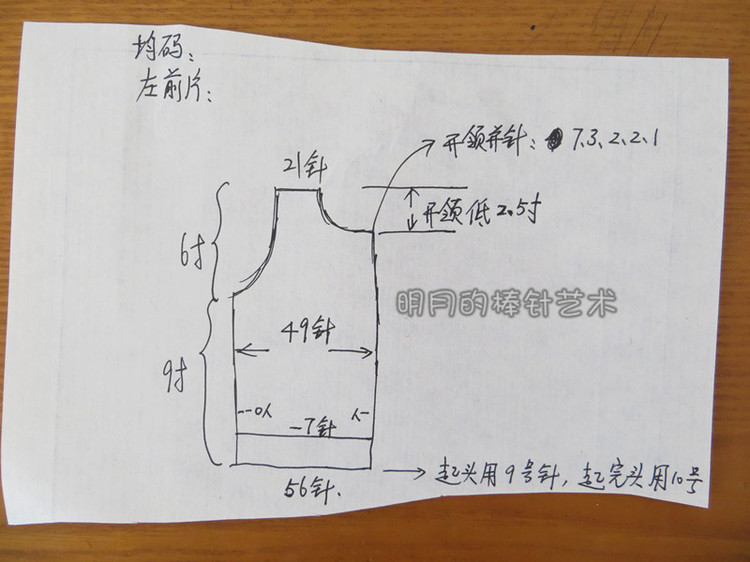 均码：
左前片：
开领并针： 7.3、2.2.1
21针
开领低2.5寸
6寸
明月的棒针艺术
49针
9寸
--o人
-7针
人-
起头用9号针，起完头用10号
56针.